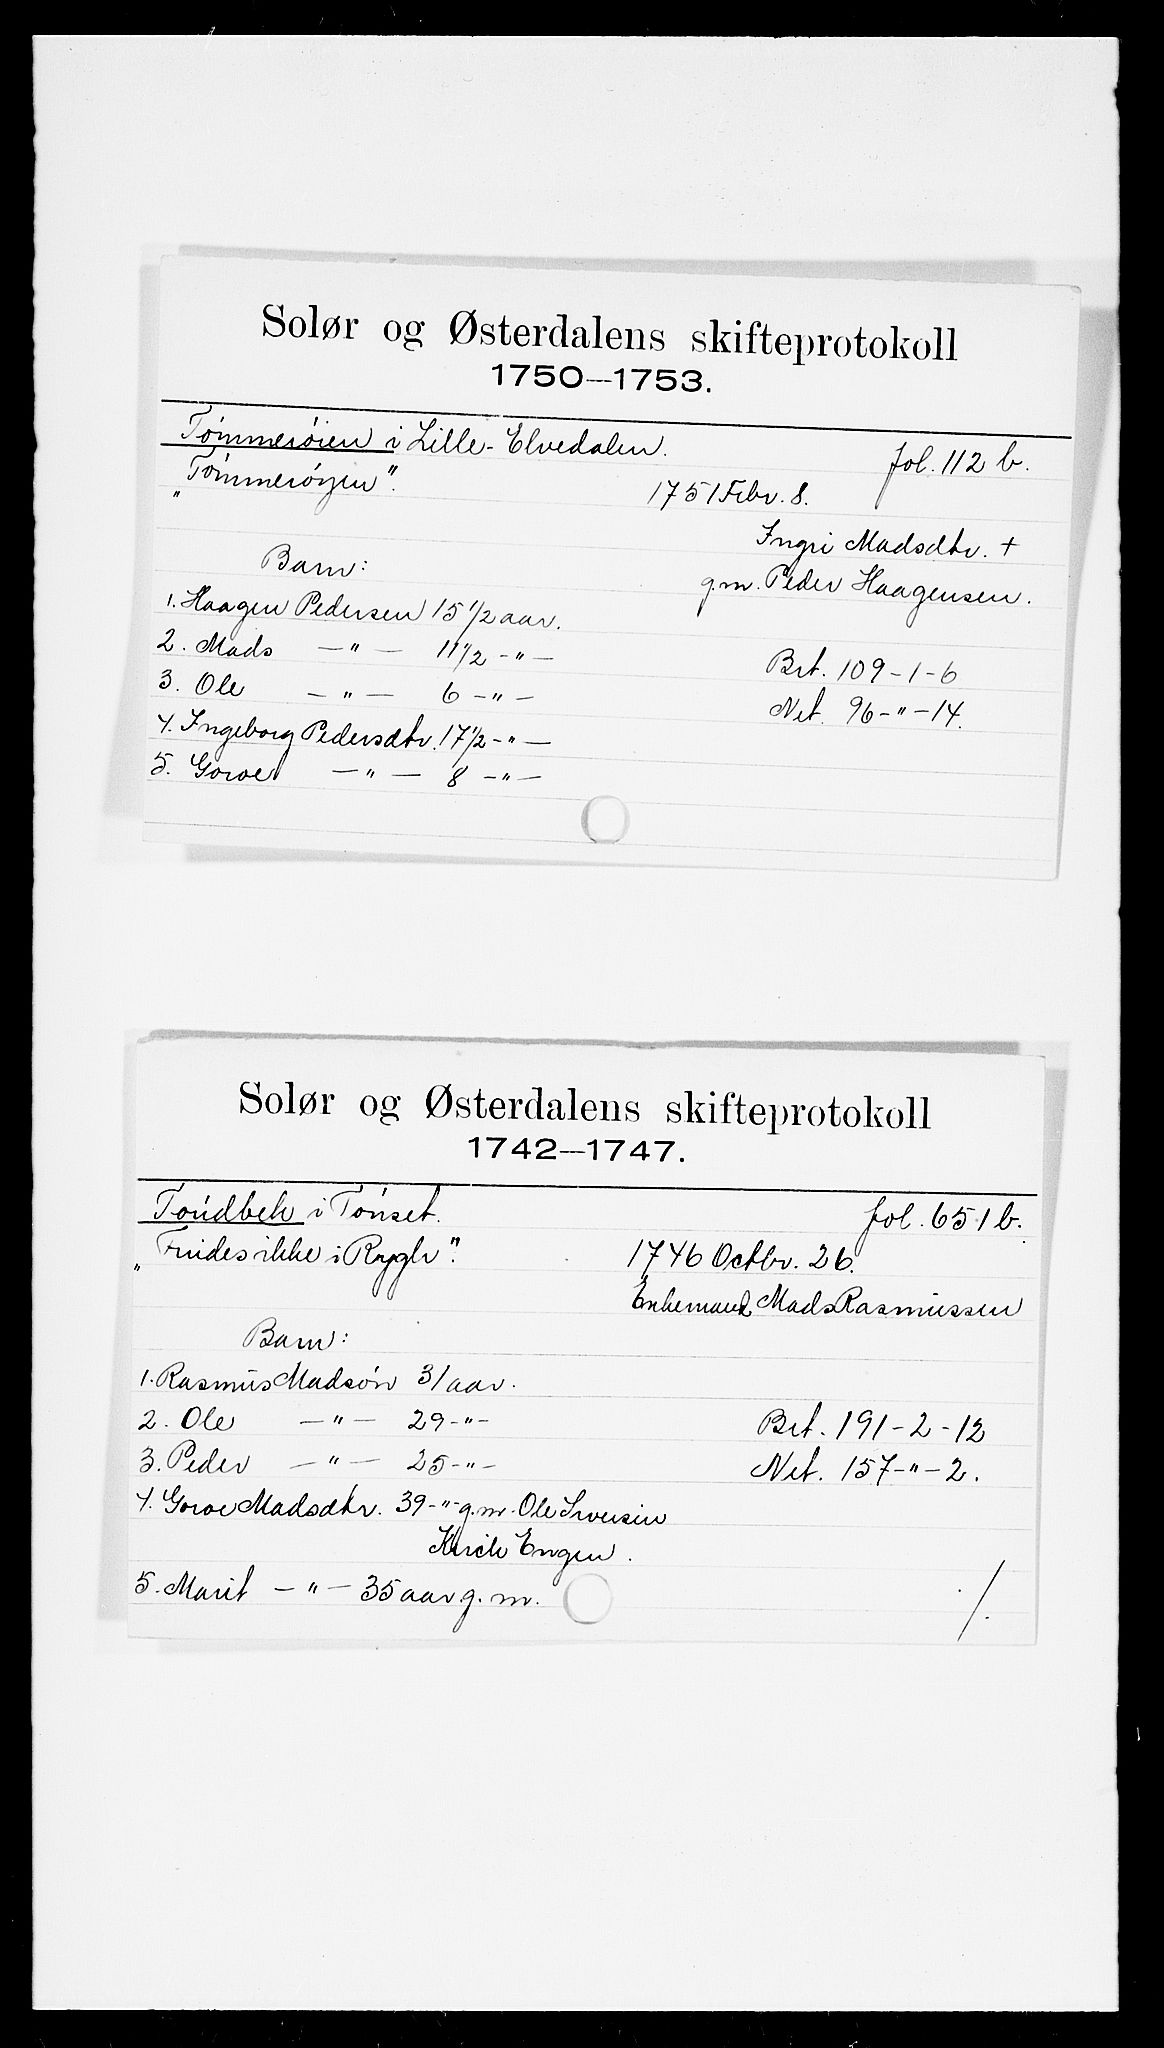 Solør og Østerdalens skifteprotokoll
1750—1753.
Tømmerøien i Lille-Elvedalen. fol. 112 b.
„Tømmerøyen". 1751 Febr. 8.
Ingri Madsdtr. +
g.m. Peder Haagensen.
Barn:
1. Haagen Pedersen 15 1/2 aar.
2. Mads —"— 11 1/2 -"— Brt. 109-1-6
3. Ole —"— 6 -"— Net. 96-"-14.
4. Ingeborg Pedersdtr. 17 1/2 -"—
5. Goroe —"— 8 -"—
Solør og Østerdalens skifteprotokoll
1742—1747.
Toúdbek i Tønset. fol. 651 b.
„Findes ikke i Rygh". 1746 Octbr. 26.
Enkemand Mads Rasmussen
Barn:
1. Rasmus Madsøn 31 aar.
2. Ole —"— 29 -"- Brt. 191-2-12
3. Peder —"— 25 -"- Net. 157-"-2.
4. Goroe Madsdtr. 39 -"- g.m. Ole Iversen
Engen.
5. Marit —"— 35 aar g.m. ./.